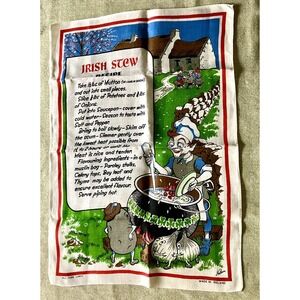 IRISH STEW
RECIPE
Take 2lbs of Mutton
and cut into small pieces.
Slice 4lbs of Potatoes and 1lb
of Onions.
Put into Saucepan - cover with
cold water - Season to taste with
Salt and Pepper.
Bring to boil slowly - Skim off
the scum - Simmer gently over
the lowest heat possible from
Meat is nice and tender.
Flavouring Ingredients - in a
muslin bag - Parsley stalks,
Celery tops, Bay leaf and
Thyme may be added to
ensure excellent Flavour.
Serve piping hot.
MADE IN IRELAND